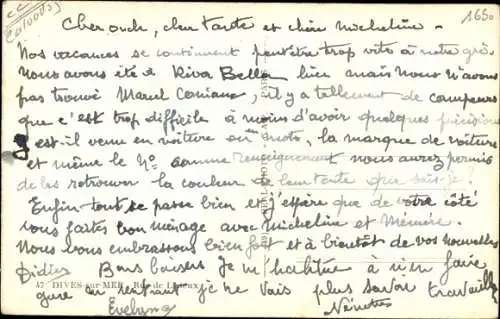 CC
Calvados
1650
Cher oncle, chère tante et chère Micheline -
Nos vacances se continuent peut-être trop vite à notre gré.
Nous avons été à Riva Bella hier mais nous n'avons
pas trouvé Marcel, il y a tellement de campeurs
que c'est trop difficile à moins d'avoir quelques précisions
est-il venu en voiture ou moto, la marque de voiture
et même le No comme renseignement nous aurez permis
de les retrouver la couleur de leur tente que sais-je!
Enfin tout se passe bien et j'espère que de votre côté
vous faites bon ménage avec Micheline et Mémère.
Nous vous embrassons bien fort et à bientôt de vos nouvelles
Didier Bons baisers Je m'habitue à rien faire
47 DIVES-sur-MER - Rue de Lisieux
gare en rentrant je ne vais plus savoir travailler
Evelyne